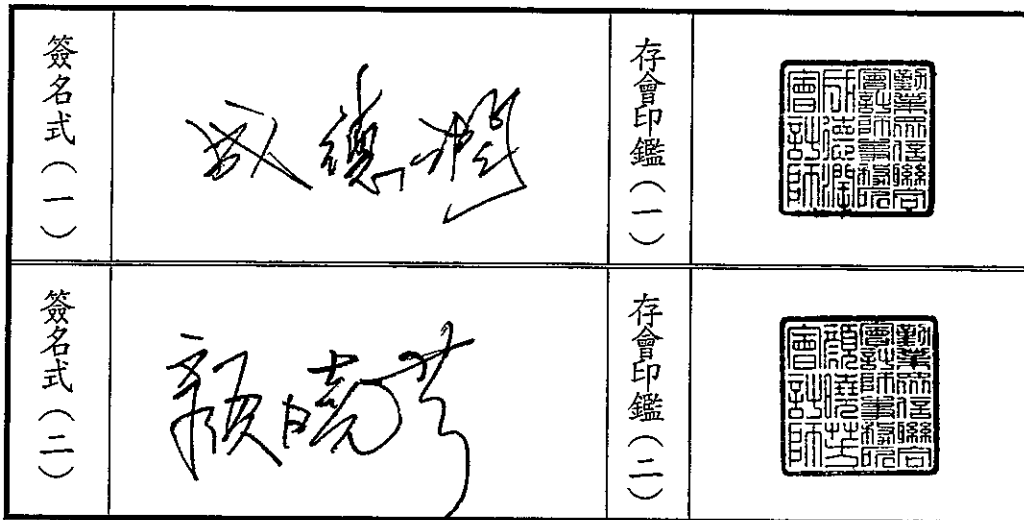 簽名式(一)
成德潤
存會印鑑(一)
勤業眾信聯合
會計師事務所
成德潤
會計師
簽名式(二)
顏曉芳
存會印鑑(二)
勤業眾信聯合
會計師事務所
顏曉芳
會計師